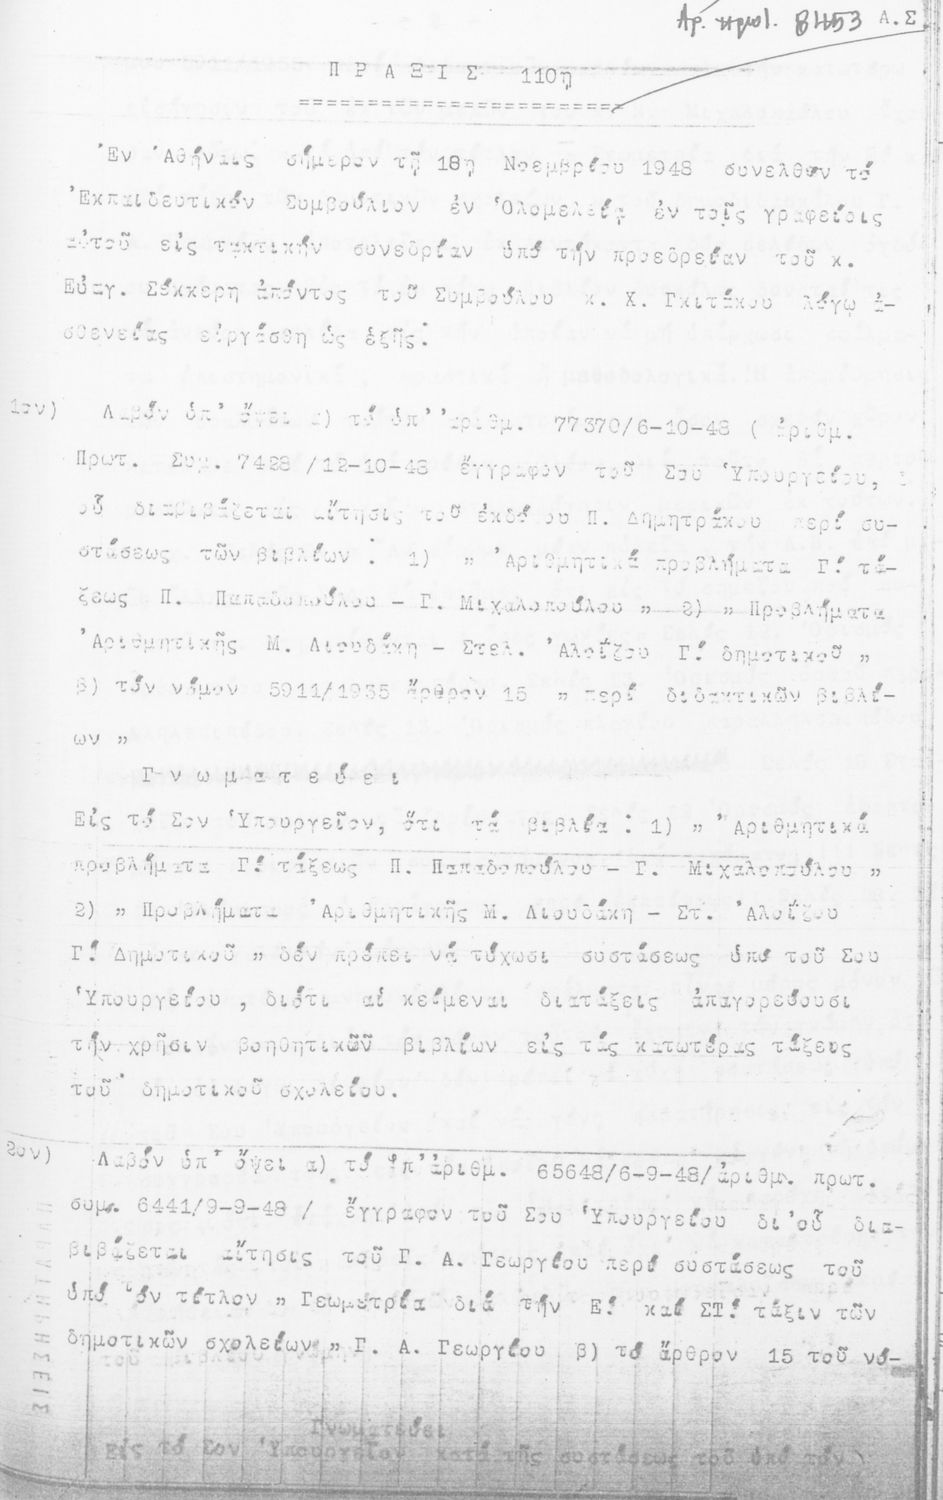 Ἀρ. πρωτ. 8453 Α.Σ
Π Ρ Α Ξ Ι Σ 110η
Ἐν Ἀθήναις σήμερον τῇ 18η Νοεμβρίου 1948 συνελθόν τό
Ἐκπαιδευτικόν Συμβούλιον ἐν Ὁλομελείᾳ ἐν τοῖς γραφείοις
αὐτοῦ εἰς τακτικήν συνεδρίαν ὑπό τήν προεδρείαν τοῦ κ.
Εὐαγ. Σέκκερη ἀπόντος τοῦ Συμβούλου κ. Χ. Γκιτάκου λόγῳ ἀ-
σθενείας εἰργάσθη ὡς ἑξῆς.
1ον) Λαβόν ὑπ' ὄψει α) τό ὑπ' ἀριθμ. 77370/6-10-48 ( ἀριθμ.
Πρωτ. Συμ. 7428/12-10-48 ἔγγραφον τοῦ Σου Ὑπουργείου,
οὗ διαβιβάζεται αἴτησις τοῦ ἐκδότου Π. Δημητράκου περί συ-
στάσεως τῶν βιβλίων : 1) „ Ἀριθμητικά προβλήματα Γ΄ τά-
ξεως Π. Παπαδοπούλου - Γ. Μιχαλοπούλου „ 2) „ Προβλήματα
Ἀριθμητικῆς Μ. Λιουδάκη - Στελ. Ἀλοΐζου Γ΄ δημοτικοῦ „
β) τόν νόμον 5911/1935 ἄρθρον 15 „ περί διδακτικῶν βιβλί-
ων „
Γ ν ω μ α τ ε ύ ε ι
Εἰς τό Σον Ὑπουργεῖον, ὅτι τά βιβλία : 1) „ Ἀριθμητικά
προβλήματα Γ΄ τάξεως Π. Παπαδοπούλου - Γ. Μιχαλοπούλου „
2) „ Προβλήματα Ἀριθμητικῆς Μ. Λιουδάκη - Στ. Ἀλοΐζου
Γ΄ Δημοτικοῦ „ δέν πρέπει νά τύχωσι συστάσεως ὑπό τοῦ Σου
Ὑπουργείου , διότι αἱ κείμεναι διατάξεις ἀπαγορεύουσι
τήν χρῆσιν βοηθητικῶν βιβλίων εἰς τάς κατωτέρας τάξεις
τοῦ δημοτικοῦ σχολείου.
2ον) Λαβόν ὑπ' ὄψει α) τό ὑπ' ἀριθμ. 65648/6-9-48/ἀριθμ. πρωτ.
συμ. 6441/9-9-48 / ἔγγραφον τοῦ Σου Ὑπουργείου δι' οὗ δια-
βιβάζεται αἴτησις τοῦ Γ. Α. Γεωργίου περί συστάσεως τοῦ
ὑπό τόν τίτλον „ Γεωμετρία διά τήν Ε΄ καί ΣΤ΄ τάξιν τῶν
δημοτικῶν σχολείων „ Γ. Α. Γεωργίου β) τό ἄρθρον 15 τοῦ νό-
Γνωματεύει
εἰς τό Σον Ὑπουργεῖον κατά τῆς συστάσεως τοῦ ὑπό τόν